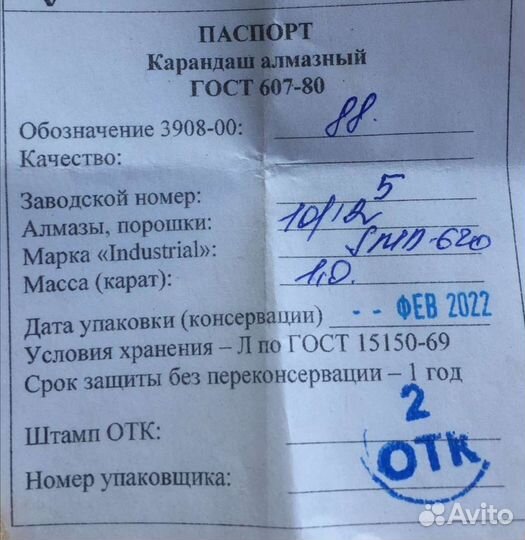 ПАСПОРТ
Карандаш алмазный
ГОСТ 607-80
Обозначение 3908-00: 88.
Качество:
Заводской номер: 5
Алмазы, порошки: 10/12
Марка «Industrial»: 620
Масса (карат): 1,0.
Дата упаковки (консервации) - - ФЕВ 2022
Условия хранения – Л по ГОСТ 15150-69
Срок защиты без переконсервации – 1 год
2
Штамп ОТК:
ОТК
Номер упаковщика:
Avito